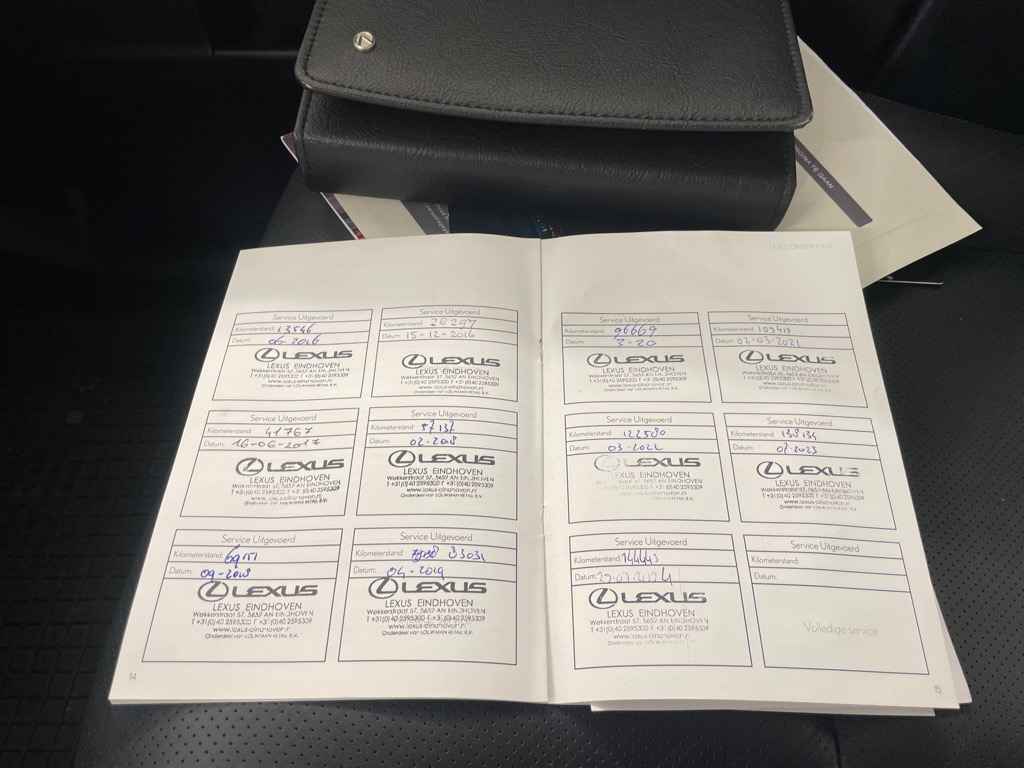 Service Uitgevoerd
Kilometerstand: 13546
Datum: 06-2016
LEXUS
LEXUS EINDHOVEN
Wekkerstraat 57, 5652 AN EINDHOVEN
T +31(0)40 2595300 F +31 (0)40 2595309
www.lexus-eindhoven.nl
Onderdeel van LOUWMAN RETAIL B.V.
Service Uitgevoerd
Kilometerstand: 26297
Datum: 15-12-2016
LEXUS
LEXUS EINDHOVEN
Wekkerstraat 57, 5652 AN EINDHOVEN
T +31(0)40 2595300 F +31 (0)40 2595309
www.lexus-eindhoven.nl
Onderdeel van LOUWMAN RETAIL B.V.
Service Uitgevoerd
Kilometerstand: 41767
Datum: 16-06-2017
LEXUS
LEXUS EINDHOVEN
Wekkerstraat 57, 5652 AN EINDHOVEN
T +31(0)40 2595300 F +31 (0)40 2595309
www.lexus-eindhoven.nl
Onderdeel van LOUWMAN RETAIL B.V.
Service Uitgevoerd
Kilometerstand: 57137
Datum: 02-2018
LEXUS
LEXUS EINDHOVEN
Wekkerstraat 57, 5652 AN EINDHOVEN
T +31(0)40 2595300 F +31 (0)40 2595309
www.lexus-eindhoven.nl
Onderdeel van LOUWMAN RETAIL B.V.
Service Uitgevoerd
Kilometerstand:
Datum: 09-2018
LEXUS
LEXUS EINDHOVEN
Wekkerstraat 57, 5652 AN EINDHOVEN
T +31(0)40 2595300 F +31 (0)40 2595309
www.lexus-eindhoven.nl
Onderdeel van LOUWMAN RETAIL B.V.
Service Uitgevoerd
Kilometerstand: 83034
Datum: 04-2019
LEXUS
LEXUS EINDHOVEN
Wekkerstraat 57, 5652 AN EINDHOVEN
T +31(0)40 2595300 F +31 (0)40 2595309
www.lexus-eindhoven.nl
Onderdeel van LOUWMAN RETAIL B.V.
14
Service Uitgevoerd
Kilometerstand: 96669
Datum: 3-20
LEXUS
LEXUS EINDHOVEN
Wekkerstraat 57, 5652 AN EINDHOVEN
T +31(0)40 2595300 F +31 (0)40 2595309
www.lexus-eindhoven.nl
Onderdeel van LOUWMAN RETAIL B.V.
Service Uitgevoerd
Kilometerstand: 109419
Datum: 02-03-2021
LEXUS
LEXUS EINDHOVEN
Service Uitgevoerd
Kilometerstand: 122580
Datum: 03-2022
LEXUS
LEXUS EINDHOVEN
Service Uitgevoerd
Kilometerstand: 138134
Datum: 07-2023
LEXUS
LEXUS EINDHOVEN
Service Uitgevoerd
Kilometerstand: 144443
Datum:
LEXUS
LEXUS EINDHOVEN
Wekkerstraat 57, 5652 AN EINDHOVEN
T +31(0)40 2595300 F +31 (0)40 2595309
www.lexus-eindhoven.nl
Onderdeel van LOUWMAN RETAIL B.V.
Service Uitgevoerd
Kilometerstand:
Datum:
Volledige service
15